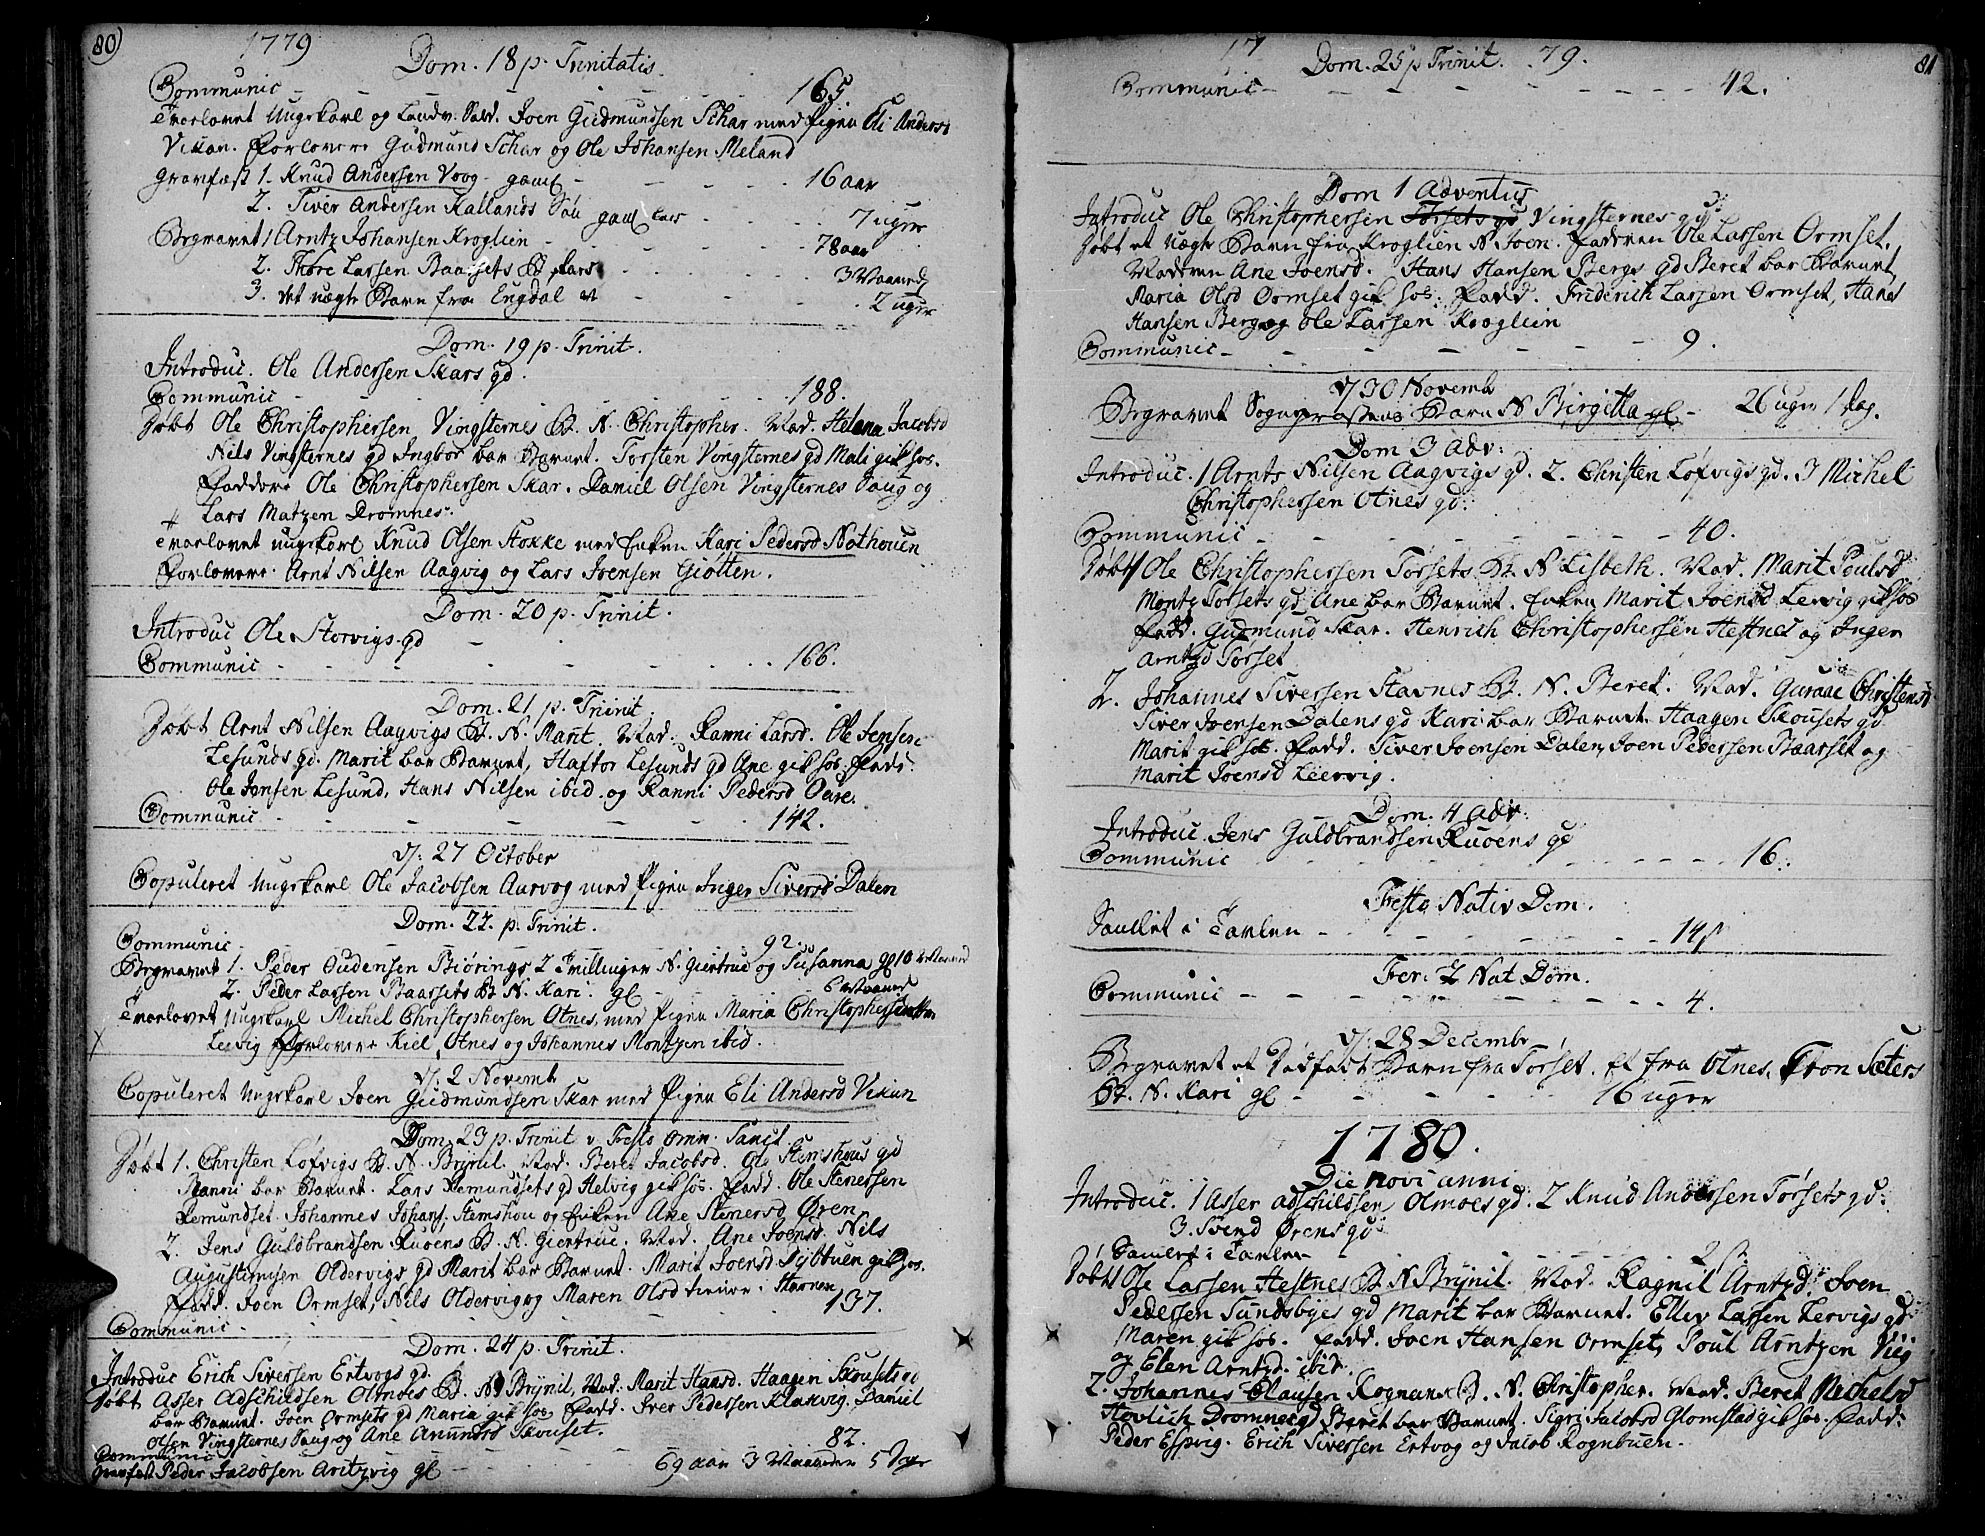 80)
1779
Dom. 18 p. Trinitatis.
Communic - - - 165
Trorlovet Ungekarl og Landv: Sold. Joen Gudmundsen Schar med Pigen Eli Andersd
Vikan. Forlovere Gudmund Schar og Ole Johansen Meland
Gravfæst 1. Knud Andersen Vaag gaml - - - 16 aar
2. Siver Andersen Kallands Søn gaml - - 7 uger
Begravet 1 Arntz Johansen Kroglien - - - 78 aar
2. Thore Larsen Baarsets B. - - - 3 Maaned
3. et uægte Barn fra Engdal - - - 2 uger
Dom. 19 p. Trinit.
Introduc. Ole Andersen Skars qd.
Communic - - - 188.
Døbt Ole Christophersen Vingsternes B. N. Christopher. Mod. Helena Jacobsd
Nils Vingsternes qd Ingbor bar Barnet. Torsten Vingsternes qd Mali gik hos.
Faddere Ole Christophersen Skar. Daniel Olsen Vingsternes Saug og
Lars Matzen Dromnes.
Trorlovet Ungekarl Knud Olsen Stokke med Enken Kari Pedersd Nothouen
Forlovere Arnt Nilsen Aagvig og Lars Joensen Giøtten.
Dom. 20 p. Trinit.
Introduc Ole Storvigs qd
Communic - - - 166.
Dom. 21 p. Trinit.
Døbt Arnt Nilsen Aagvigs B. N. Marit. Mod. Ranni Larsd. Ole Jensen
Lesunds qd. Marit bar Barnet, Haftor Lesunds qd Ane gik hos. Fadd.
Ole Jensen Lesund, Hans Nilsen ibid. og Ranni Pedersd Oure.
Communic - - - 142.
d: 27 October
Copuleret Ungekarl Ole Jacobsen Aurvog med Pigen Inger Siversd Dalen
Dom. 22. p. Trinit.
Communic - - 92.
Begravet 1. Peder Oudensen Biørings 2 Tvillinger N. Giertrue og Susanna gl 10
2. Peder Larsen Baarsets B N. Kari. gl - - 6 Maaned
Trorlovet Ungekarl Michel Christophersen Otnes, med Pigen Maria
Leivig Forlovere Kiel Otnes og Johannes Montzen ibid.
d: 2 Novemb
Copuleret Ungekarl Joen Gudmundsen Skar med Pigen Eli Andersd Vikan
Dom. 23 p. Trinit v. Festo omn. Sanct
Døbt 1. Christen Løfvigs B. N. Brynil. Mod. Beret Jacobsd. Ole Stemshous qd
Ranni bar Barnet. Lars Remundsets qd Helvig gik hos. Fadd. Ole Stenersen
Remundset. Johannes Johans. Stemshou og Enken Ane Stenersd Øren
2. Jens Guldbrandsen Ruoens B. N. Giertrue. Mod. Ane Joensd. Nils
Augustinusen Oldervigs qd Marit bar Barnet. Marit Joensd Nybtuen gik hos.
Fadd. Joen Ormset, Nils Oldervig og Maren Olsd tienere i
Communic - 137.
Dom. 24 p. Trinit.
Introduc Erich Siversen Ertvogs qd.
Døbt Asser Adschildsen Olmoes B. N. Brynil, Mod. Marit Hansd. Haagen Skousets qd
bar Barnet. Joen Ormsets qd Maria gik hos. Fadd. Iver Pedersen Klakvig. Daniel
Olsen Vingsternes Saug og Ane Amundsd Skouset.
Communic - - 82.
Gravfæst Peder Jacobsen Aritzvig gl - - 69 aar 3 Maaneder 5 Dage
17 79. 81
Dom. 25 p Trinit.
Communic - - - 42.
Dom 1 Adventus
Introduc Ole Christophersen Torsets qd Vingsternes qd
Døbt et uægte Barn fra Kroglien N Joen. Faderen Ole Larsen Ormset,
Moderen Ane Joensd. Hans Hansen Bergs qd Beret bar Barnet,
Maria Olsd Ormset gik hos. Fadd. Friderich Larsen Ormset, Hans
Hansen Berg og Ole Larsen Kroglien
Communic - - - 9.
d/30 Novemb
Begravet Sognepræstens Barn N Birgitta gl - 26 uger 1 dag.
Dom 3 Adv:
Introduc. 1 Arnts Nilsen Aagvigs qd. 2. Christen Løfvigs qd. 3 Michel
Christophersen Otnes qd.
Communic - - - 40.
Døbt 1 Ole Christophersen Torsets B. N Lisbeth. Mod. Marit Poulsd
Montz Torsets qd Ane bar Barnet. Enken Marit Joensd Lervig gik hos
Fadd. Gudmund Skar. Henrich Christophersen Hestnes og Inger
Arntzd Torset
2. Johannes Siversen Stavnes B. N. Beret. Mod. Guraae Christensd
Siver Joensen Dalens qd Kari bar Barnet. Haagen Skousets qd
Marit gik hos. Fadd. Siver Joensen Dalen, Joen Pedersen Baarset og
Marit Joensd Leervig.
Dom. 4 Adv:
Introduc. Jens Guldbrandsen Ruoens qd
Communic - - - 16.
Festo Nativ Dom.
Samlet i Tavlen - - - 14 ß
Fer: 2 Nat Dom.
Communic - - - 4.
d: 28 Decembr
Begravet et Dødfødt Barn fra Torset. Et fra Otnes. Tron Sæters
B. N. Kari gl - - - 16 uger
1780.
Die novi anni
Introduc. 1 Asser Adschildsen Olmoes qd. 2 Knud Andersen Torsets qd.
3. Svend Ørens qd
Samlet i Tavlen - - - 2 ß
Døbt 1 Ole Larsen Hestnes B. N Brynil. Mod. Ragnil Arntzd. Joen
Pedersen Sundsbyes qd Marit bar Barnet. Ellev Larsen Lervigs qd
Maren gik hos. Fadd. Joen Hansen Ormset, Poul Arntzen Viig
og Elen Arntzd ibid.
2. Johannes Clausen Rognens B. N. Christopher. Mod. Beret Michelsd
Hovlich Dromnes qd Beret bar Barnet. Sigri Jacobsd Glomstad gik hos. Fadd.
Peder Espvig. Erich Siversen Ertvog og Jacob Rognbuen.